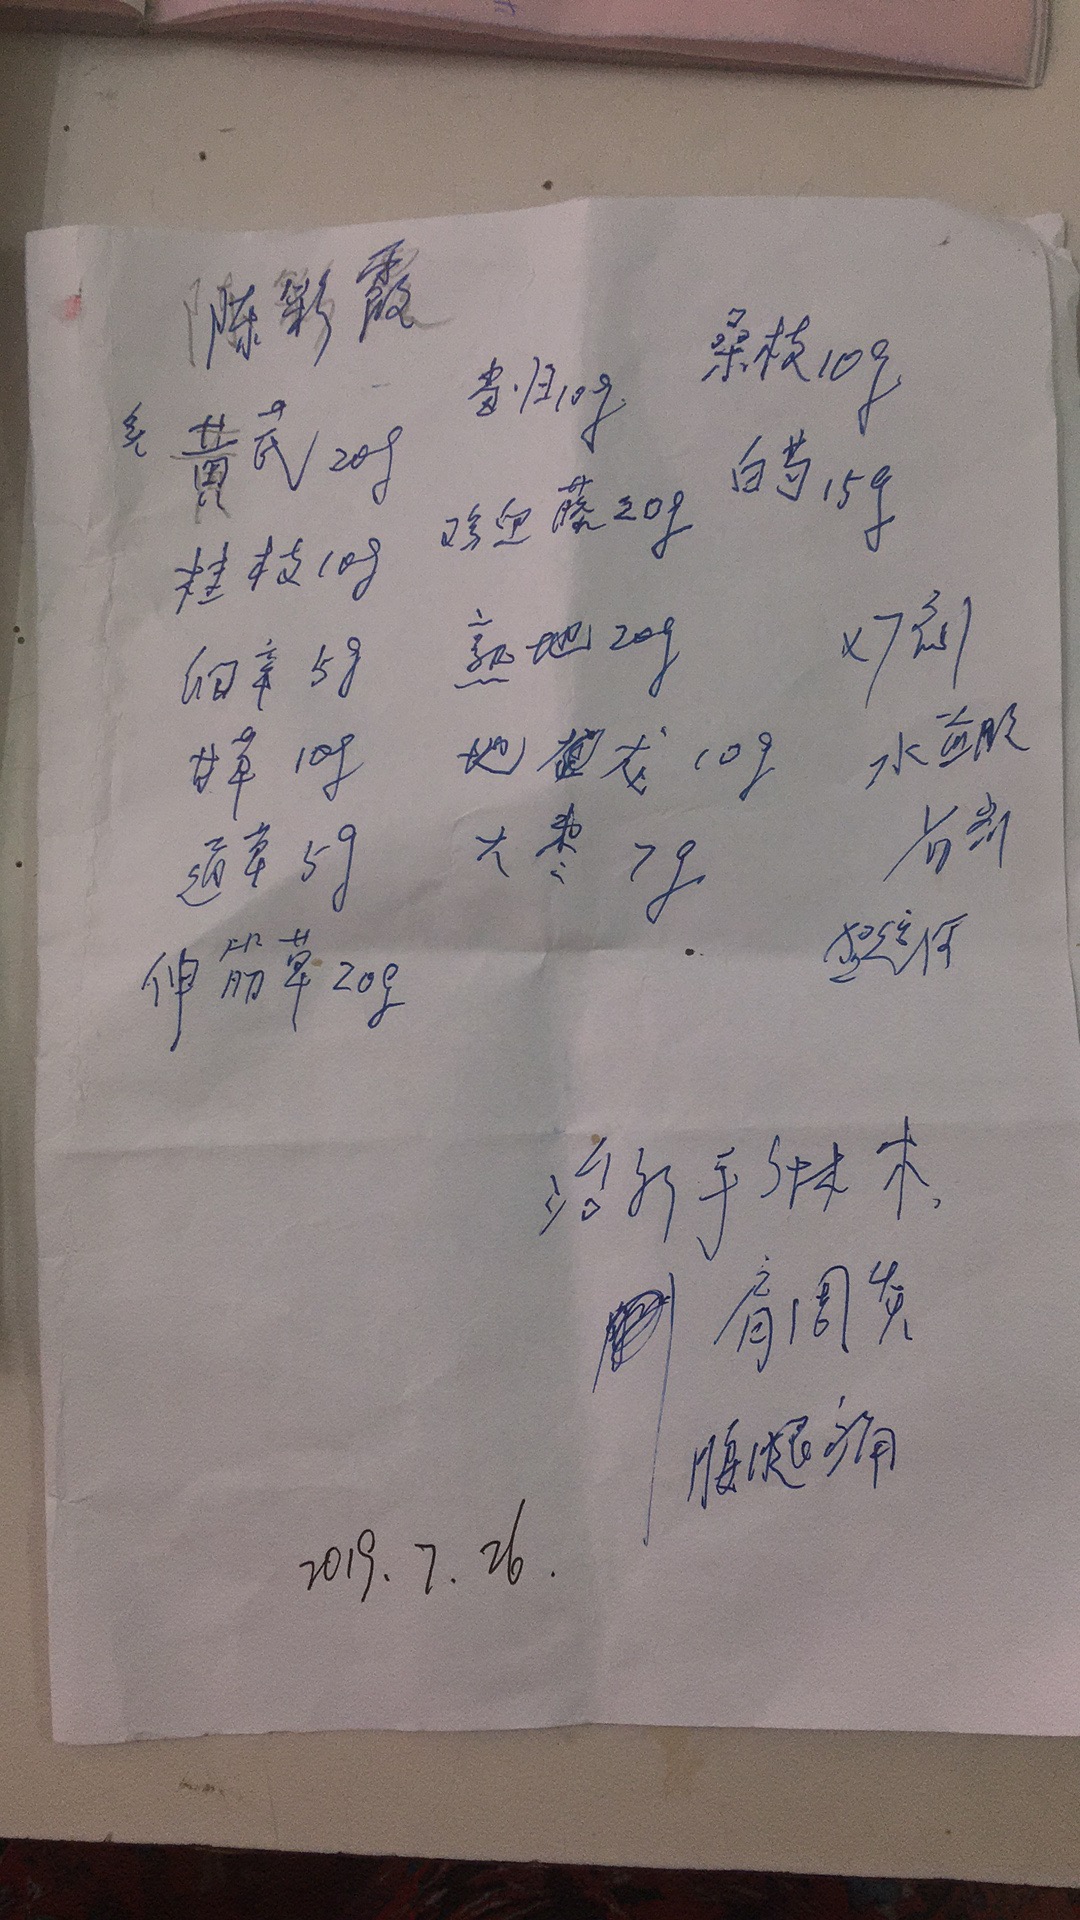 陈彩霞
炙黄芪20g
桂枝10g
细辛5g
甘草10g
通草5g
伸筋草20g
当归10g
鸡血藤20g
熟地20g
地龙10g
大枣7g
桑枝10g
白芍15g
x7剂
水煎服
治疗手外麻木、
肩周炎
腰腿痛
2019.7.26.